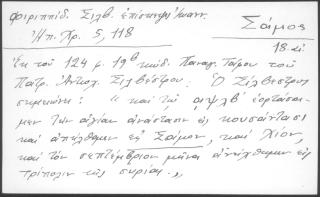 Φιριππίδ. Σιλβ. ἐπίσκεψ. Ἰωανν.
Ἠπ. Χρ. 5, 118
Σάμος
18. αἰ
Ἐκ τοῦ 124 φ. 19β κώδ. Παναγ. Τάφου τοῦ
Πατρ. Ἀντιοχ. Σιλβέστρου: Ὁ Σίλβεστρος
σημειώνει: "καὶ τῷ αψλβ' ἑορτάσα-
μεν τὴν ἁγίαν ἀνάστασιν εἰς κουσάντασι
καὶ ἀπήλθομεν εἰς Σάμον, καὶ Χίον,
καὶ τὸν σεπτέμβριον μῆνα ἀνήλθομεν εἰς
τρίπολιν τῆς συρίας."